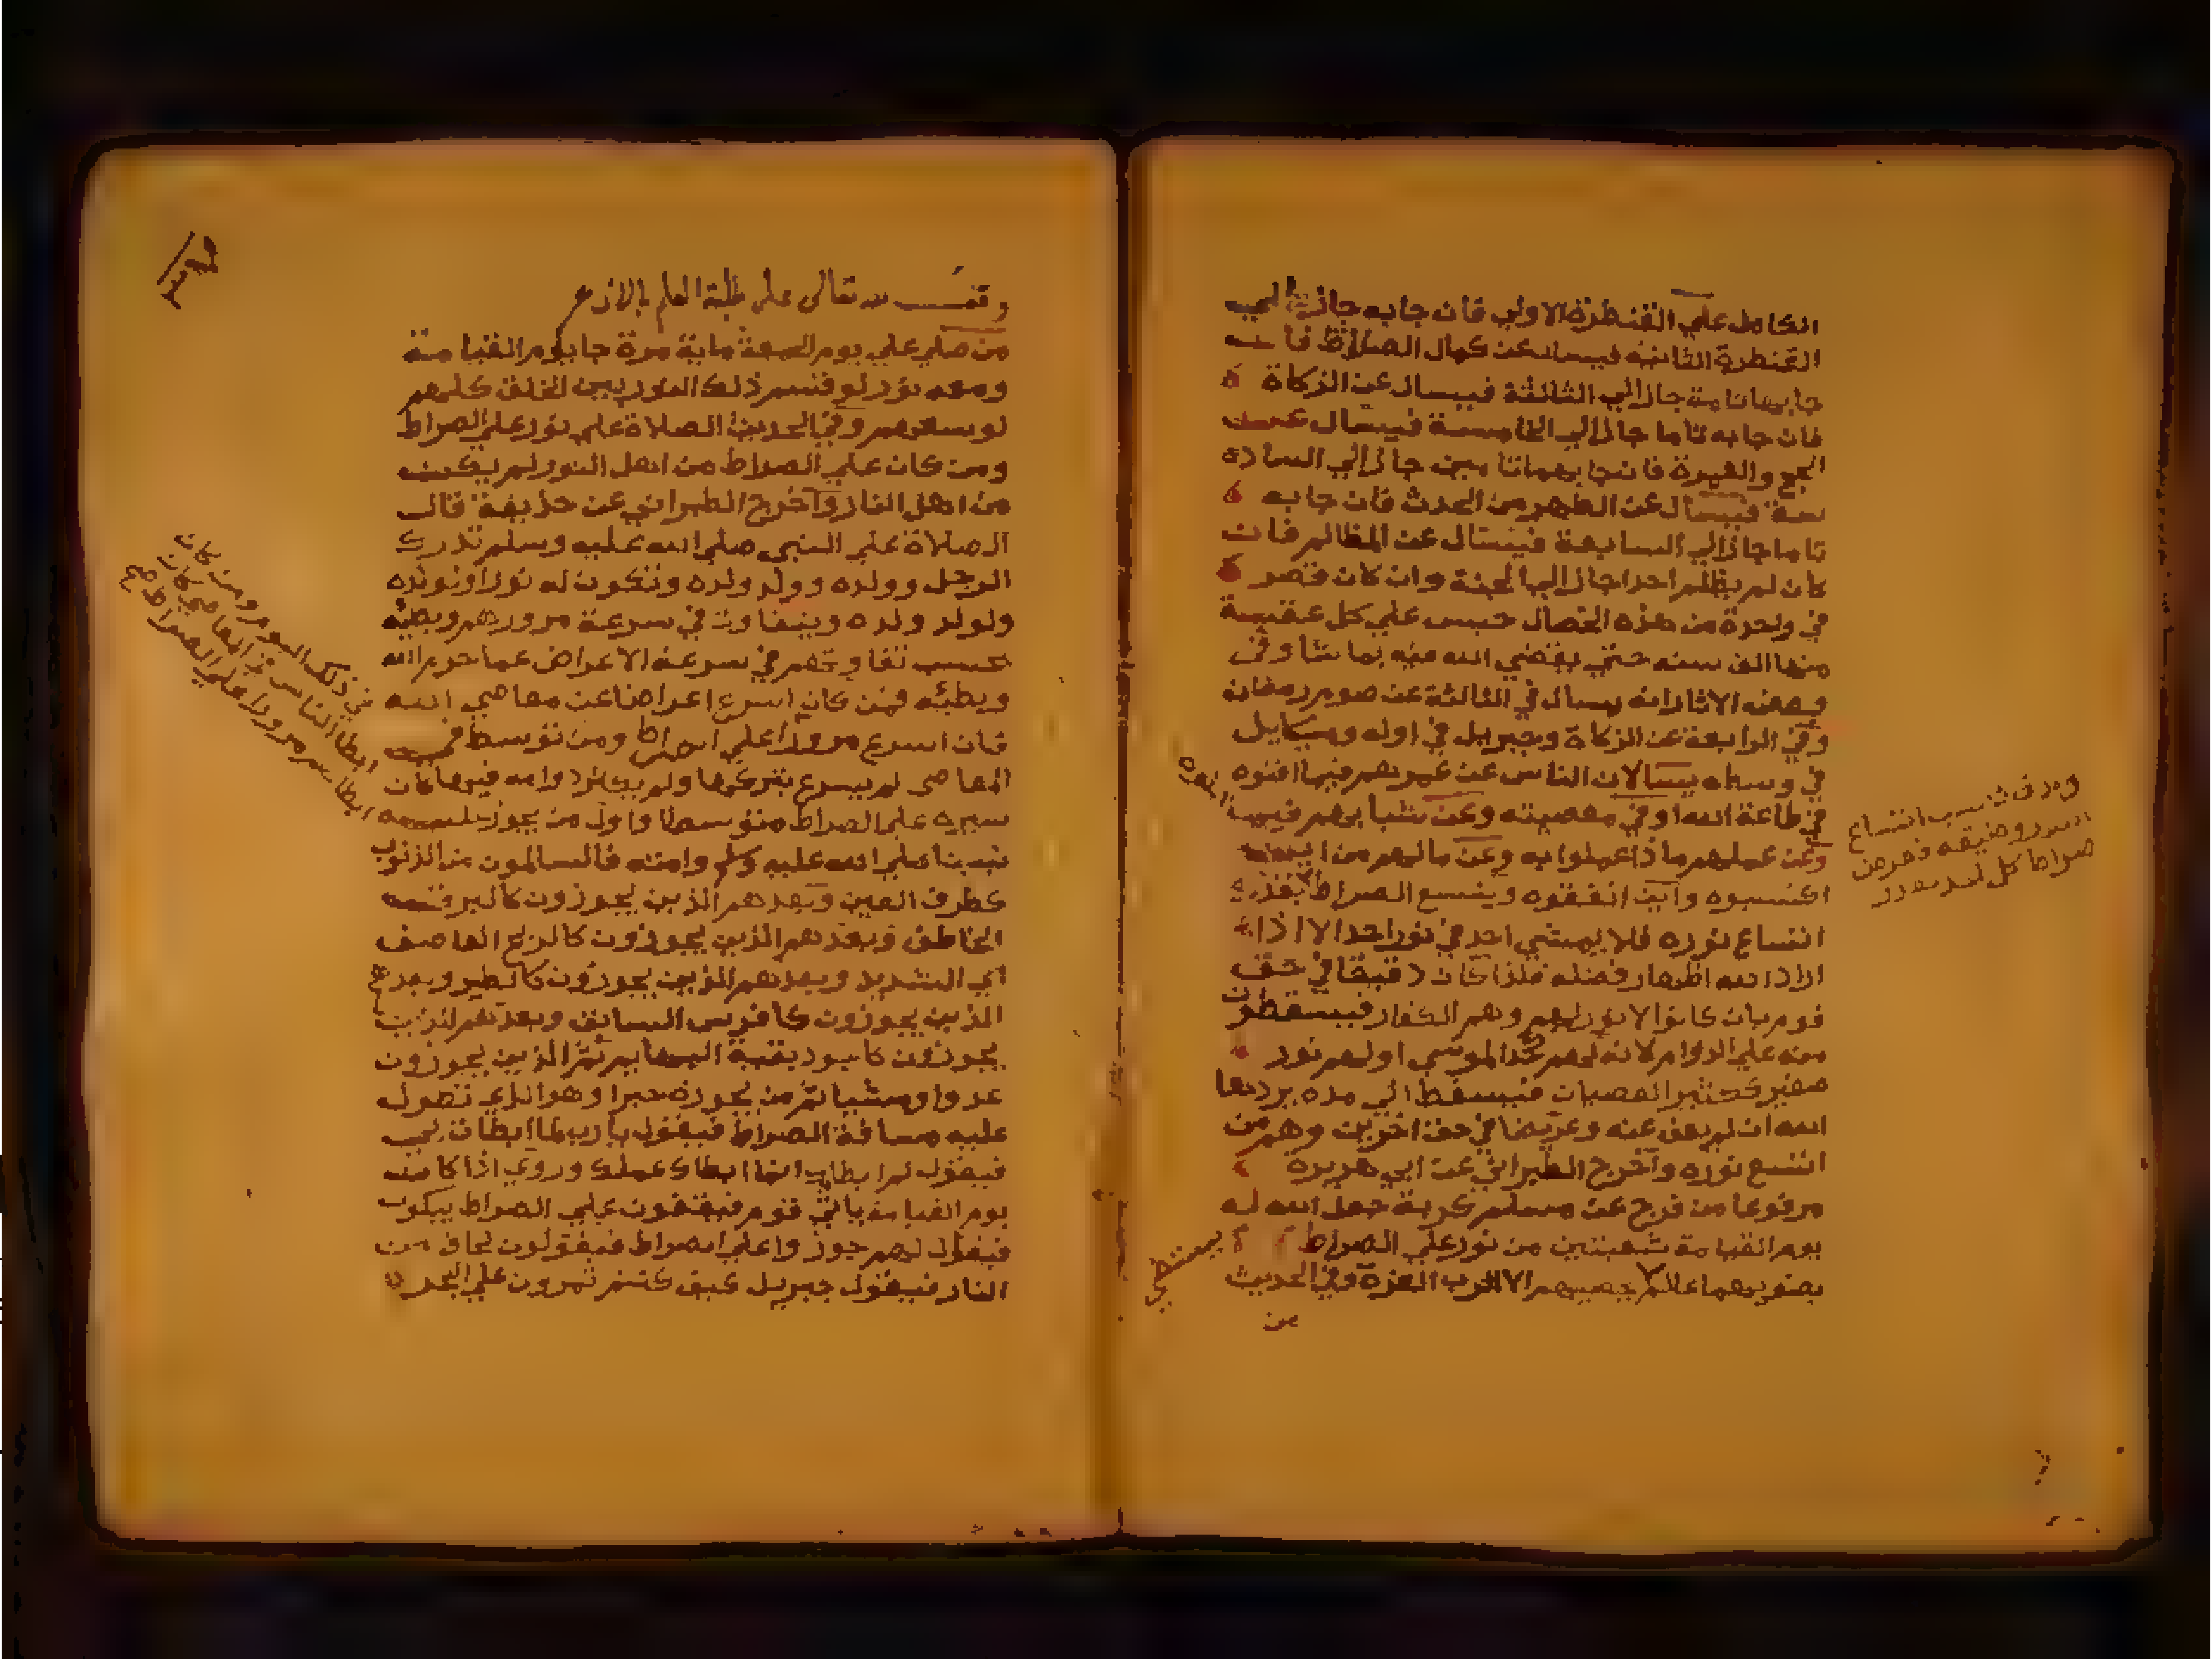 الكامل علي القنطرة الاولي فان جا به جاز الي
القنطرة الثانيه فيسال عن كمال الصلاة فان
جا بها تامة جاز الي الثالثة فيسال عن الزكاة
فان جا به تاما جاز الي الخامسة فيسال عن
الحج والعمرة فان جا بهما تامين جاز الي السا
دسة فيسال عن الطهر من الحدث فان جا به
تاما جاز الي السابعة فيسال عن المظالم فان
كان لم يظلم احدا جاز الي الجنة وان كان قصر
في واحدة من هذه الخصال حبس علي كل عقبة
منها الف سنه حتي يقضي الله فيه بما شا وفي
بعض الاثار انه يسال في الثالثة عن صوم رمضان
وفي الرابعة عن الزكاة وجبريل في اوله وميكايل
في وسطه يسالان الناس عن عمرهم فيما افنوه
في طاعة الله او في معصيته وعن شبابهم فيما
وعن عملهم ماذا عملوا به وعن مالهم من اين
اكتسبوه واين انفقوه ويتسع الصراط بقدر
اتساع نوره فلا يمشي احد في نور احد الا اذا
اراد الله اظهار فضله فلذا كان دقيقا في حق
قوم بان كانوا لا نور لهم وهم الكفار فيسقطون
منه علي الدوام لانه لهم اولهم نور
صغير ككثير العصيان فيسقط الي مدة يردها
الله ان لم يعف عنه وعريضا في حق اخرين وهم من
اتسع نوره واخرج الطبراني عن ابي هريرة
مرفوعا من فرج عن مسلم كربة جعل الله له
يوم القيامة شعبتين من نور علي الصراط
يستضي
بضوءهما عالم لا يحصيهم الا رب العزة وفي الحديث
من
اتساع
النور وضيقه فعرض
صراط كل احد بقدر
وقف لله تعالى على طلبة العلم بالازهر
من صلي علي يوم الجمعة ماية مرة جا يوم القيامة
ومعه نور لو قسم ذلك النور بين الخلق كلهم
لوسعهم وفي الحديث الصلاة علي نور علي الصراط
ومن كان علي الصراط من اهل النور لم يكن
من اهل النار واخرج الطبراني عن حذيفة قال
الصلاة علي النبي صلي الله عليه وسلم تدرك
الرجل وولده وولد ولده وتكون له نورا ولولده
ولولد ولده ويتفاوت في سرعة مرورهم وبطئه
بحسب تفاوتهم في سرعة الاعراض عما حرم الله
وبطئه فمن كان اسرع اعراضا عن معاصي الله
كان اسرع مرورا علي الصراط ومن توسط في
المعاصي لم يسرع بتركها ولم دوامه فيها كان
سيره علي الصراط متوسطا واول من يجوز
نبينا صلي الله عليه وسلم وامته فالسالمون من الذنوب
كطرف العين وبعدهم الذين يجوزون كالبرق
الخاطف وبعدهم الذين يجوزون كالريح العاصف
اي الشديد وبعدهم الذين يجوزون كالطير وبعدهم
الذين يجوزون كالفرس السابق وبعدهم الذين
يجوزون كاجود بقية البهايم ثم الذين يجوزون
عدوا ومشيا ثم من يجوزه حبوا وهو الذي تطول
عليه مسافة الصراط فيقول يا رب لما ابطات بي
فيقول لم ابطا بك انما ابطا بك عملك وروي اذا كان
يوم القيامة ياتي قوم فيقفون علي الصراط يبكون
فيقال لهم جوزوا علي الصراط فيقولون نخاف من
النار فيقول جبريل كيف كنتم تمرون علي البحر
في ذلك ومن كان
ابطا الناس في المعاصي كان
ابطاهم مرورا علي الصراط صح